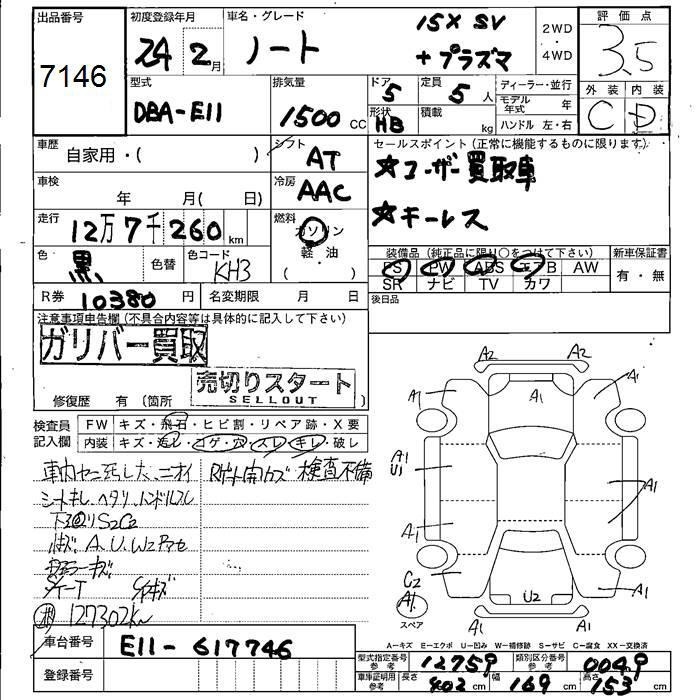 出品番号 初度登録年月 車名・グレード 15X SV 2WD 評価点
7146 24 2月 ノート +プラズマ ・4WD 3.5
型式 排気量 ドア 5 定員 5人 ディーラー・並行 外装 内装
DBA-E11 1500 CC 形状 HB 積載 kg モデル年式 年 C D
ハンドル 左・右
車歴 自家用・( ) シフト AT セールスポイント(正常に機能するものに限ります)
☆ユーザー買取車
車検 年 月( 日) 冷房 AAC
☆キーレス
走行 12万7千260km 燃料 ガソリン
軽・油
( )
色 黒 色替 色コード KH3 装備品(純正品に限り○をつけて下さい) 新車保証書
PS PW ABS エアB AW 有・無
SR ナビ TV カワ
R券 10380円 名変期限 月 日 後日品
注意事項申告欄(不具合内容等は具体的に記入して下さい)
ガリバー買取
売切りスタート
SELLOUT
修復歴 有(箇所 )
検査員記入欄 FW キズ・飛石・ヒビ割・リペア跡・X要
内装 キズ・汚レ・コゲ・穴・スレ・キレ・破レ
検査不備
シートキレ ヘタリ ハンドルスレ
A.U.W2
127302km
A2 A2
A1 A1 A1
A1
U1
A1
A1 A1
C2
A1 U2 A1
A1
スペア
車台番号 E11-617746
A-キズ E-エクボ U-凹み W-補修跡 S-サビ C-腐食 XX-交換済
登録番号 型式指定番号 参考 12759 類別区分番号 参考 0049
車庫証明用 参考 長さ 402cm 幅 169cm 高さ 153cm